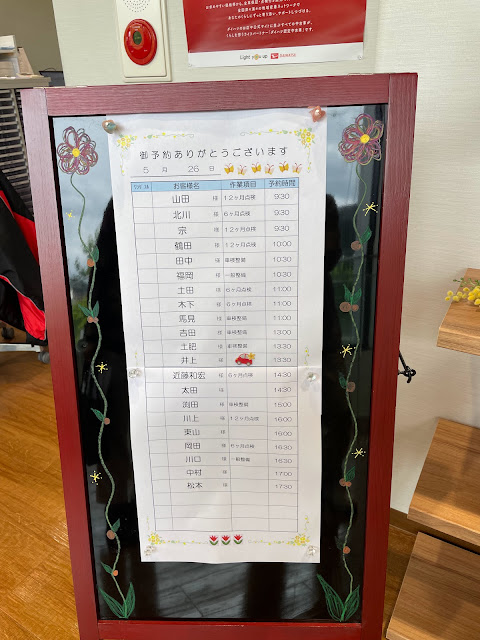 ダイハツの故障や公式サイトには載せすべての中古車が、
Light you up DAIHATSU
御予約ありがとうございます
5 月 26 日
お客様名 作業項目 予約時間
山田 様 12ヶ月点検 9:30
北川 様 6ヶ月点検 9:30
宗 様 12ヶ月点検 9:30
鶴田 様 12ヶ月点検 10:00
田中 様 車検整備 10:30
福岡 様 一般整備 10:30
土田 様 6ヶ月点検 11:00
木下 様 6ヶ月点検 11:00
馬見 様 車検整備 11:00
吉田 様 車検整備 13:00
土肥 様 車検整備 13:30
井上 様 13:30
近藤和宏 様 6ヶ月点検 14:30
太田 様 14:30
渕田 様 車検整備 15:00
川上 様 12ヶ月点検 16:00
東山 様 16:00
岡田 様 6ヶ月点検 16:30
川口 様 一般整備 16:30
中村 様 17:00
松本 様 17:30